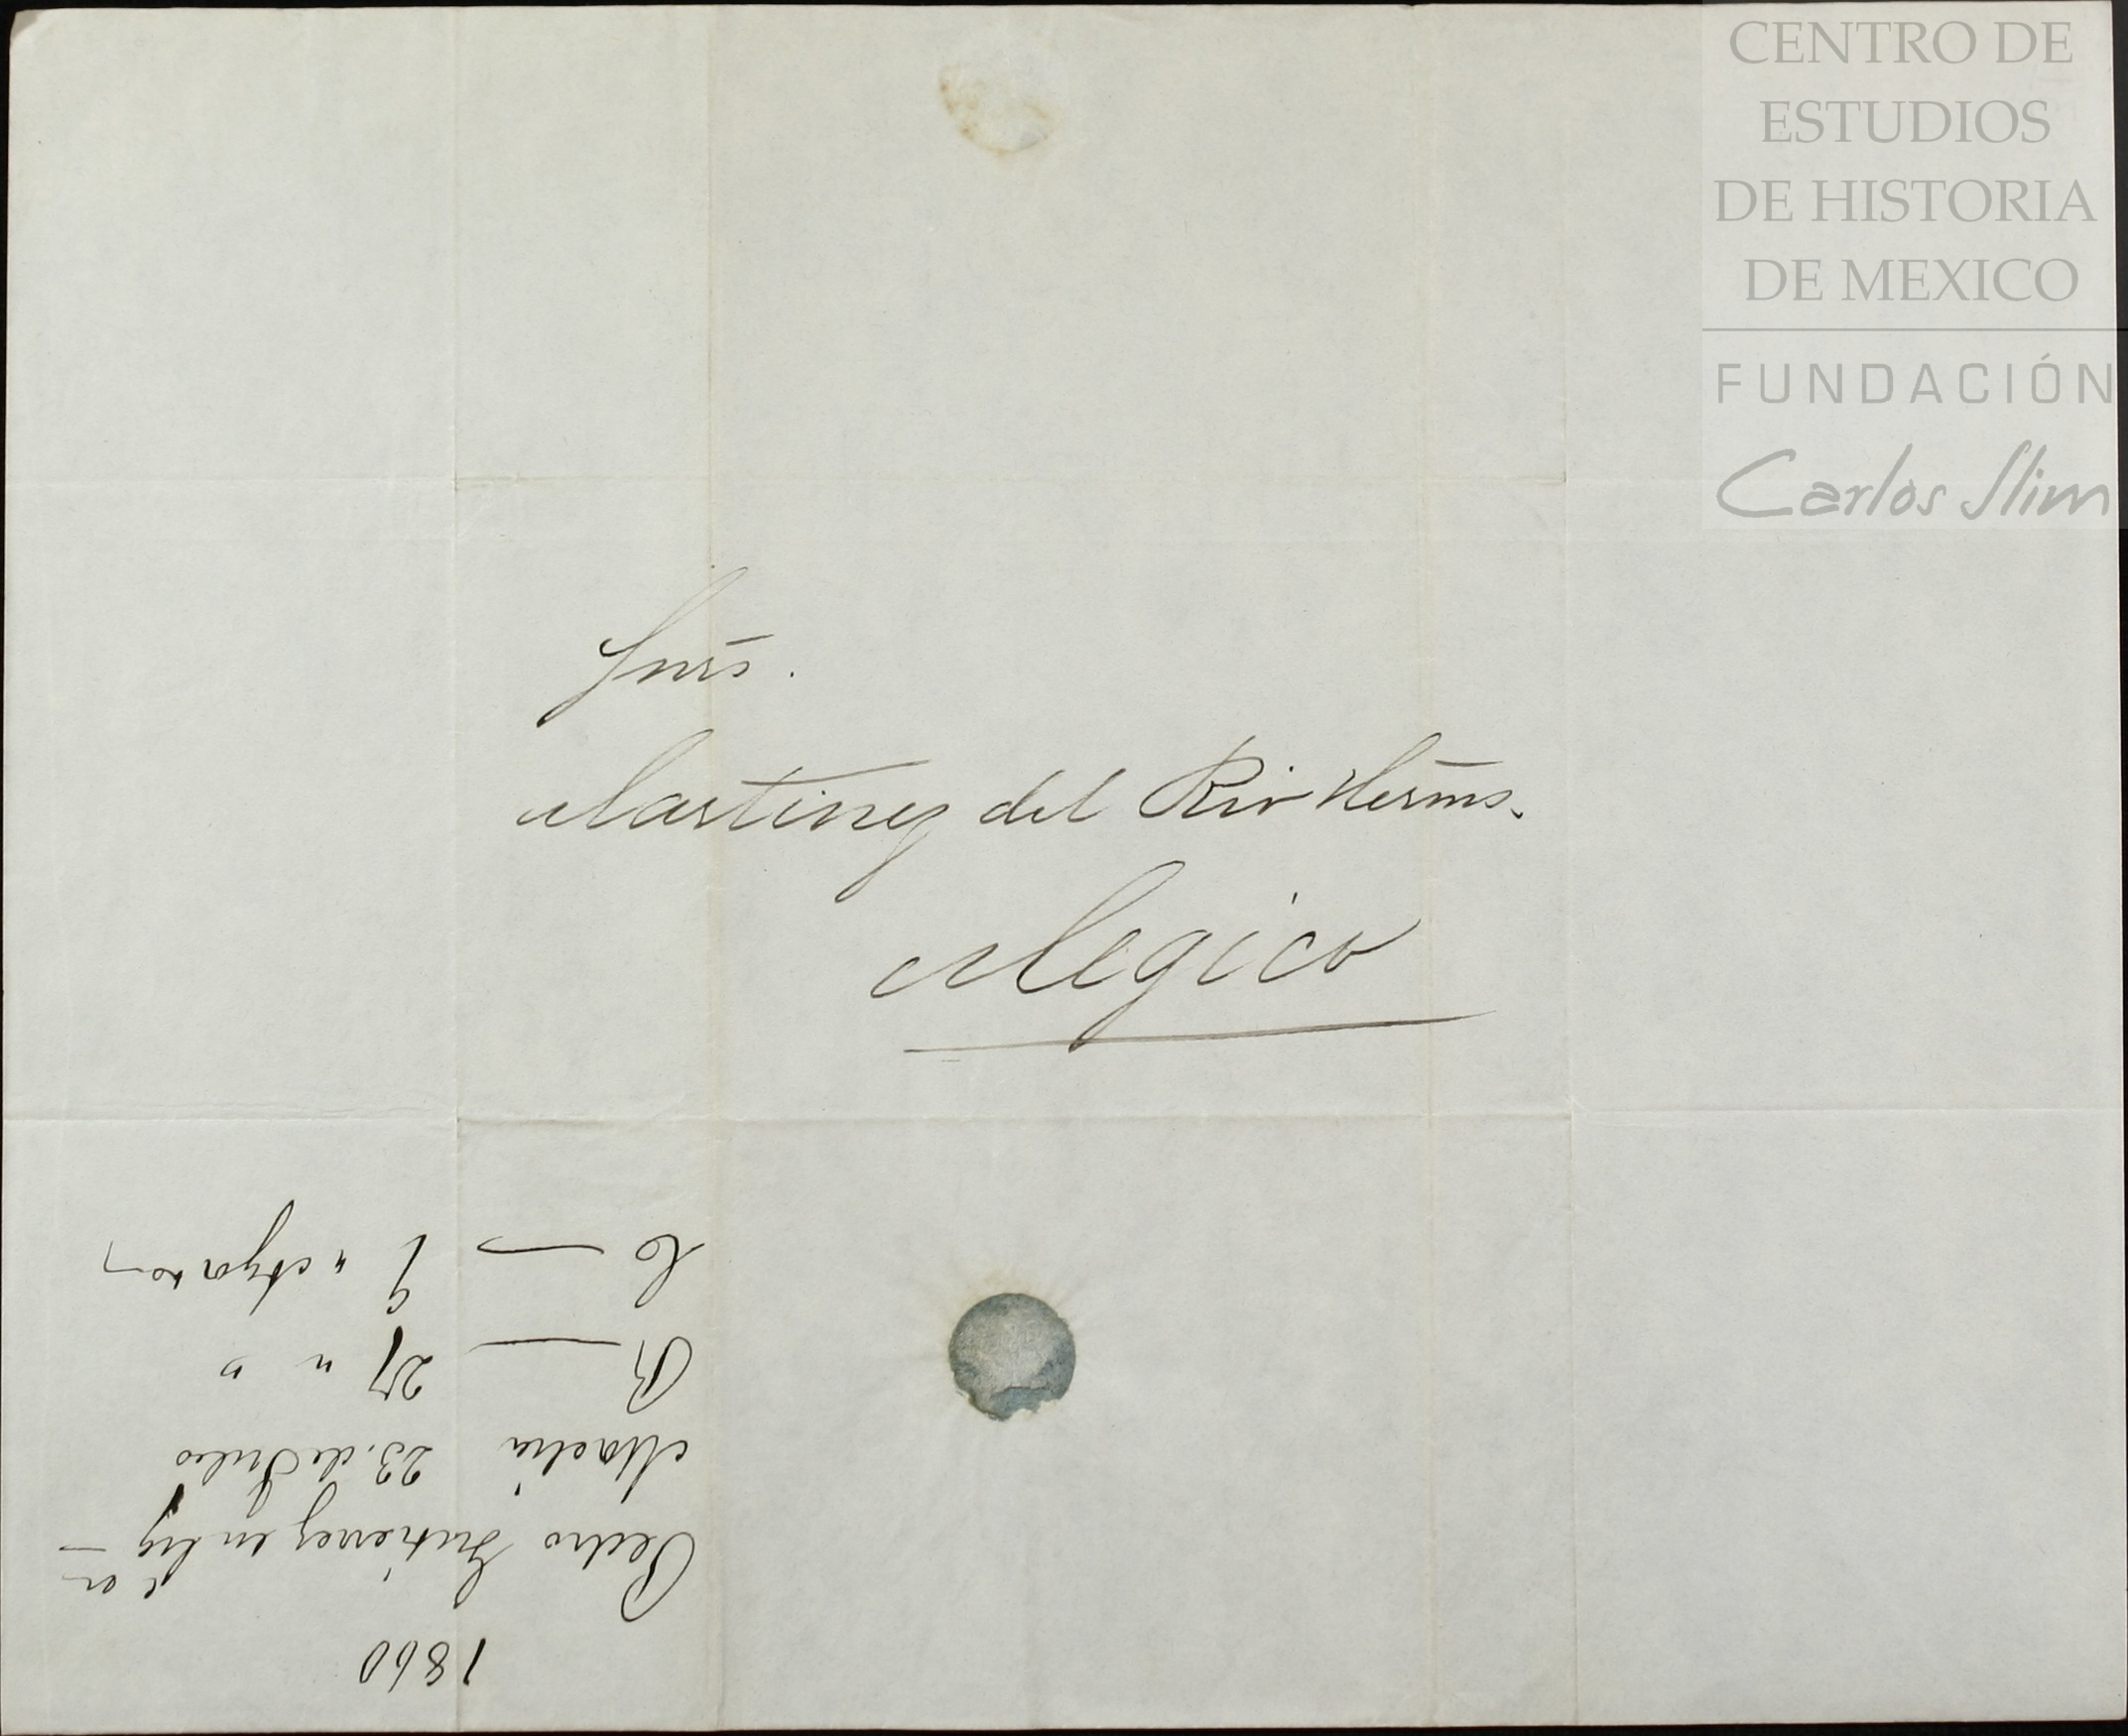 CENTRO DE
ESTUDIOS
DE HISTORIA
DE MEXICO
FUNDACIÓN
Carlos Slim
Snrs.
Martinez del Rio Herms.
Megico
1860
Pedro Gutierrez en liq
23. de Julio
R — 27 " "
C — 9 "